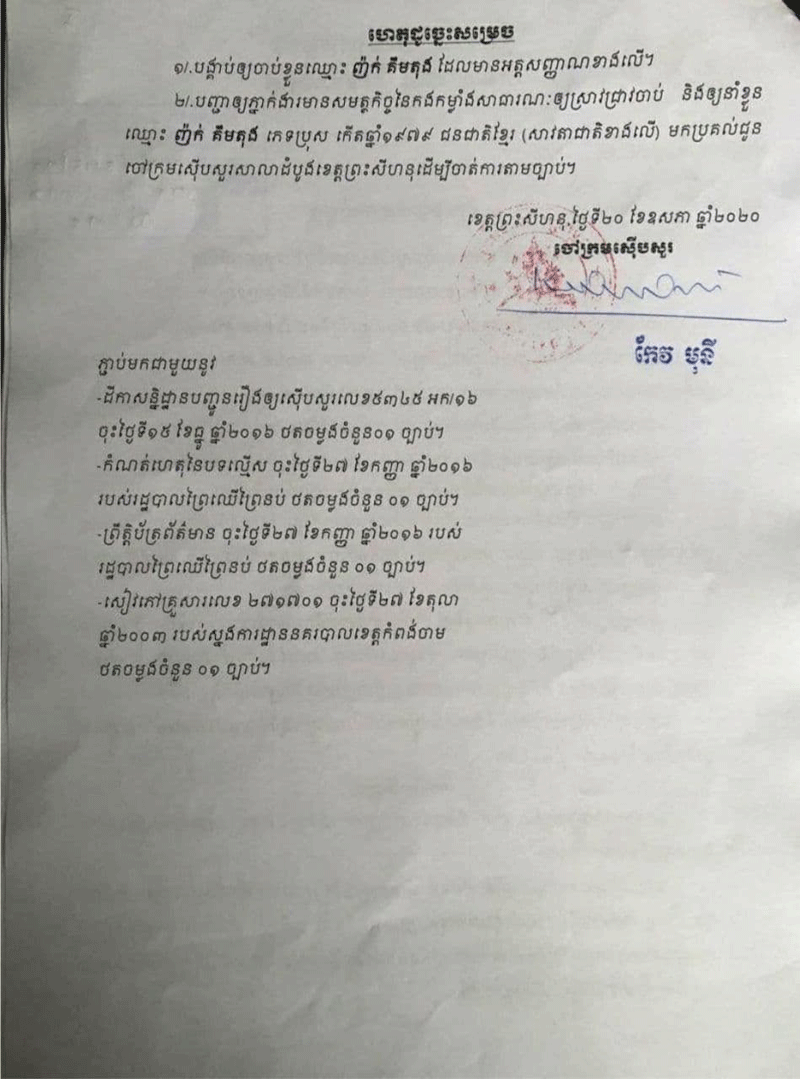 ហេតុដូច្នេះសម្រេច
១/.បង្គាប់ឲ្យចាប់ខ្លួនឈ្មោះ ញ៉ក់ គឹមតុង ដែលមានអត្តសញ្ញាណខាងលើ។
២/.បញ្ជាឲ្យភ្នាក់ងារមានសមត្ថកិច្ចនៃកងកម្លាំងសាធារណៈឲ្យស្រាវជ្រាវចាប់ និងឲ្យនាំខ្លួន
ឈ្មោះ ញ៉ក់ គឹមតុង ភេទប្រុស កើតឆ្នាំ១៩៧៩ ជនជាតិខ្មែរ (សាវតាជាតិខាងលើ) មកប្រគល់ជូន
ចៅក្រមស៊ើបសួរសាលាដំបូងខេត្តព្រះសីហនុដើម្បីចាត់ការតាមច្បាប់។
ខេត្តព្រះសីហនុ,ថ្ងៃទី២០ ខែឧសភា ឆ្នាំ២០២០
ចៅក្រមស៊ើបសួរ
កែវ មុន្នី
ភ្ជាប់មកជាមួយនូវ
-ដីកាសន្និដ្ឋានបញ្ជូនរឿងឲ្យស៊ើបសួរលេខ៥៣៤៥ អក/១៦
ចុះថ្ងៃទី១៥ ខែធ្នូ ឆ្នាំ២០១៦ ថតចម្លងចំនួន០១ ច្បាប់។
-កំណត់ហេតុនៃបទល្មើស ចុះថ្ងៃទី២៧ ខែកញ្ញា ឆ្នាំ២០១៦
របស់រដ្ឋបាលព្រៃឈើព្រៃនប់ ថតចម្លងចំនួន ០១ ច្បាប់។
-ព្រឹត្តិប័ត្រព័ត៌មាន ចុះថ្ងៃទី២៧ ខែកញ្ញា ឆ្នាំ២០១៦ របស់
រដ្ឋបាលព្រៃឈើព្រៃនប់ ថតចម្លងចំនួន ០១ ច្បាប់។
-សៀវភៅគ្រួសារលេខ ២៧១៧០១ ចុះថ្ងៃទី២៧ ខែតុលា
ឆ្នាំ២០០៣ របស់ស្នងការដ្ឋាននគរបាលខេត្តកំពង់ចាម
ថតចម្លងចំនួន ០១ ច្បាប់។